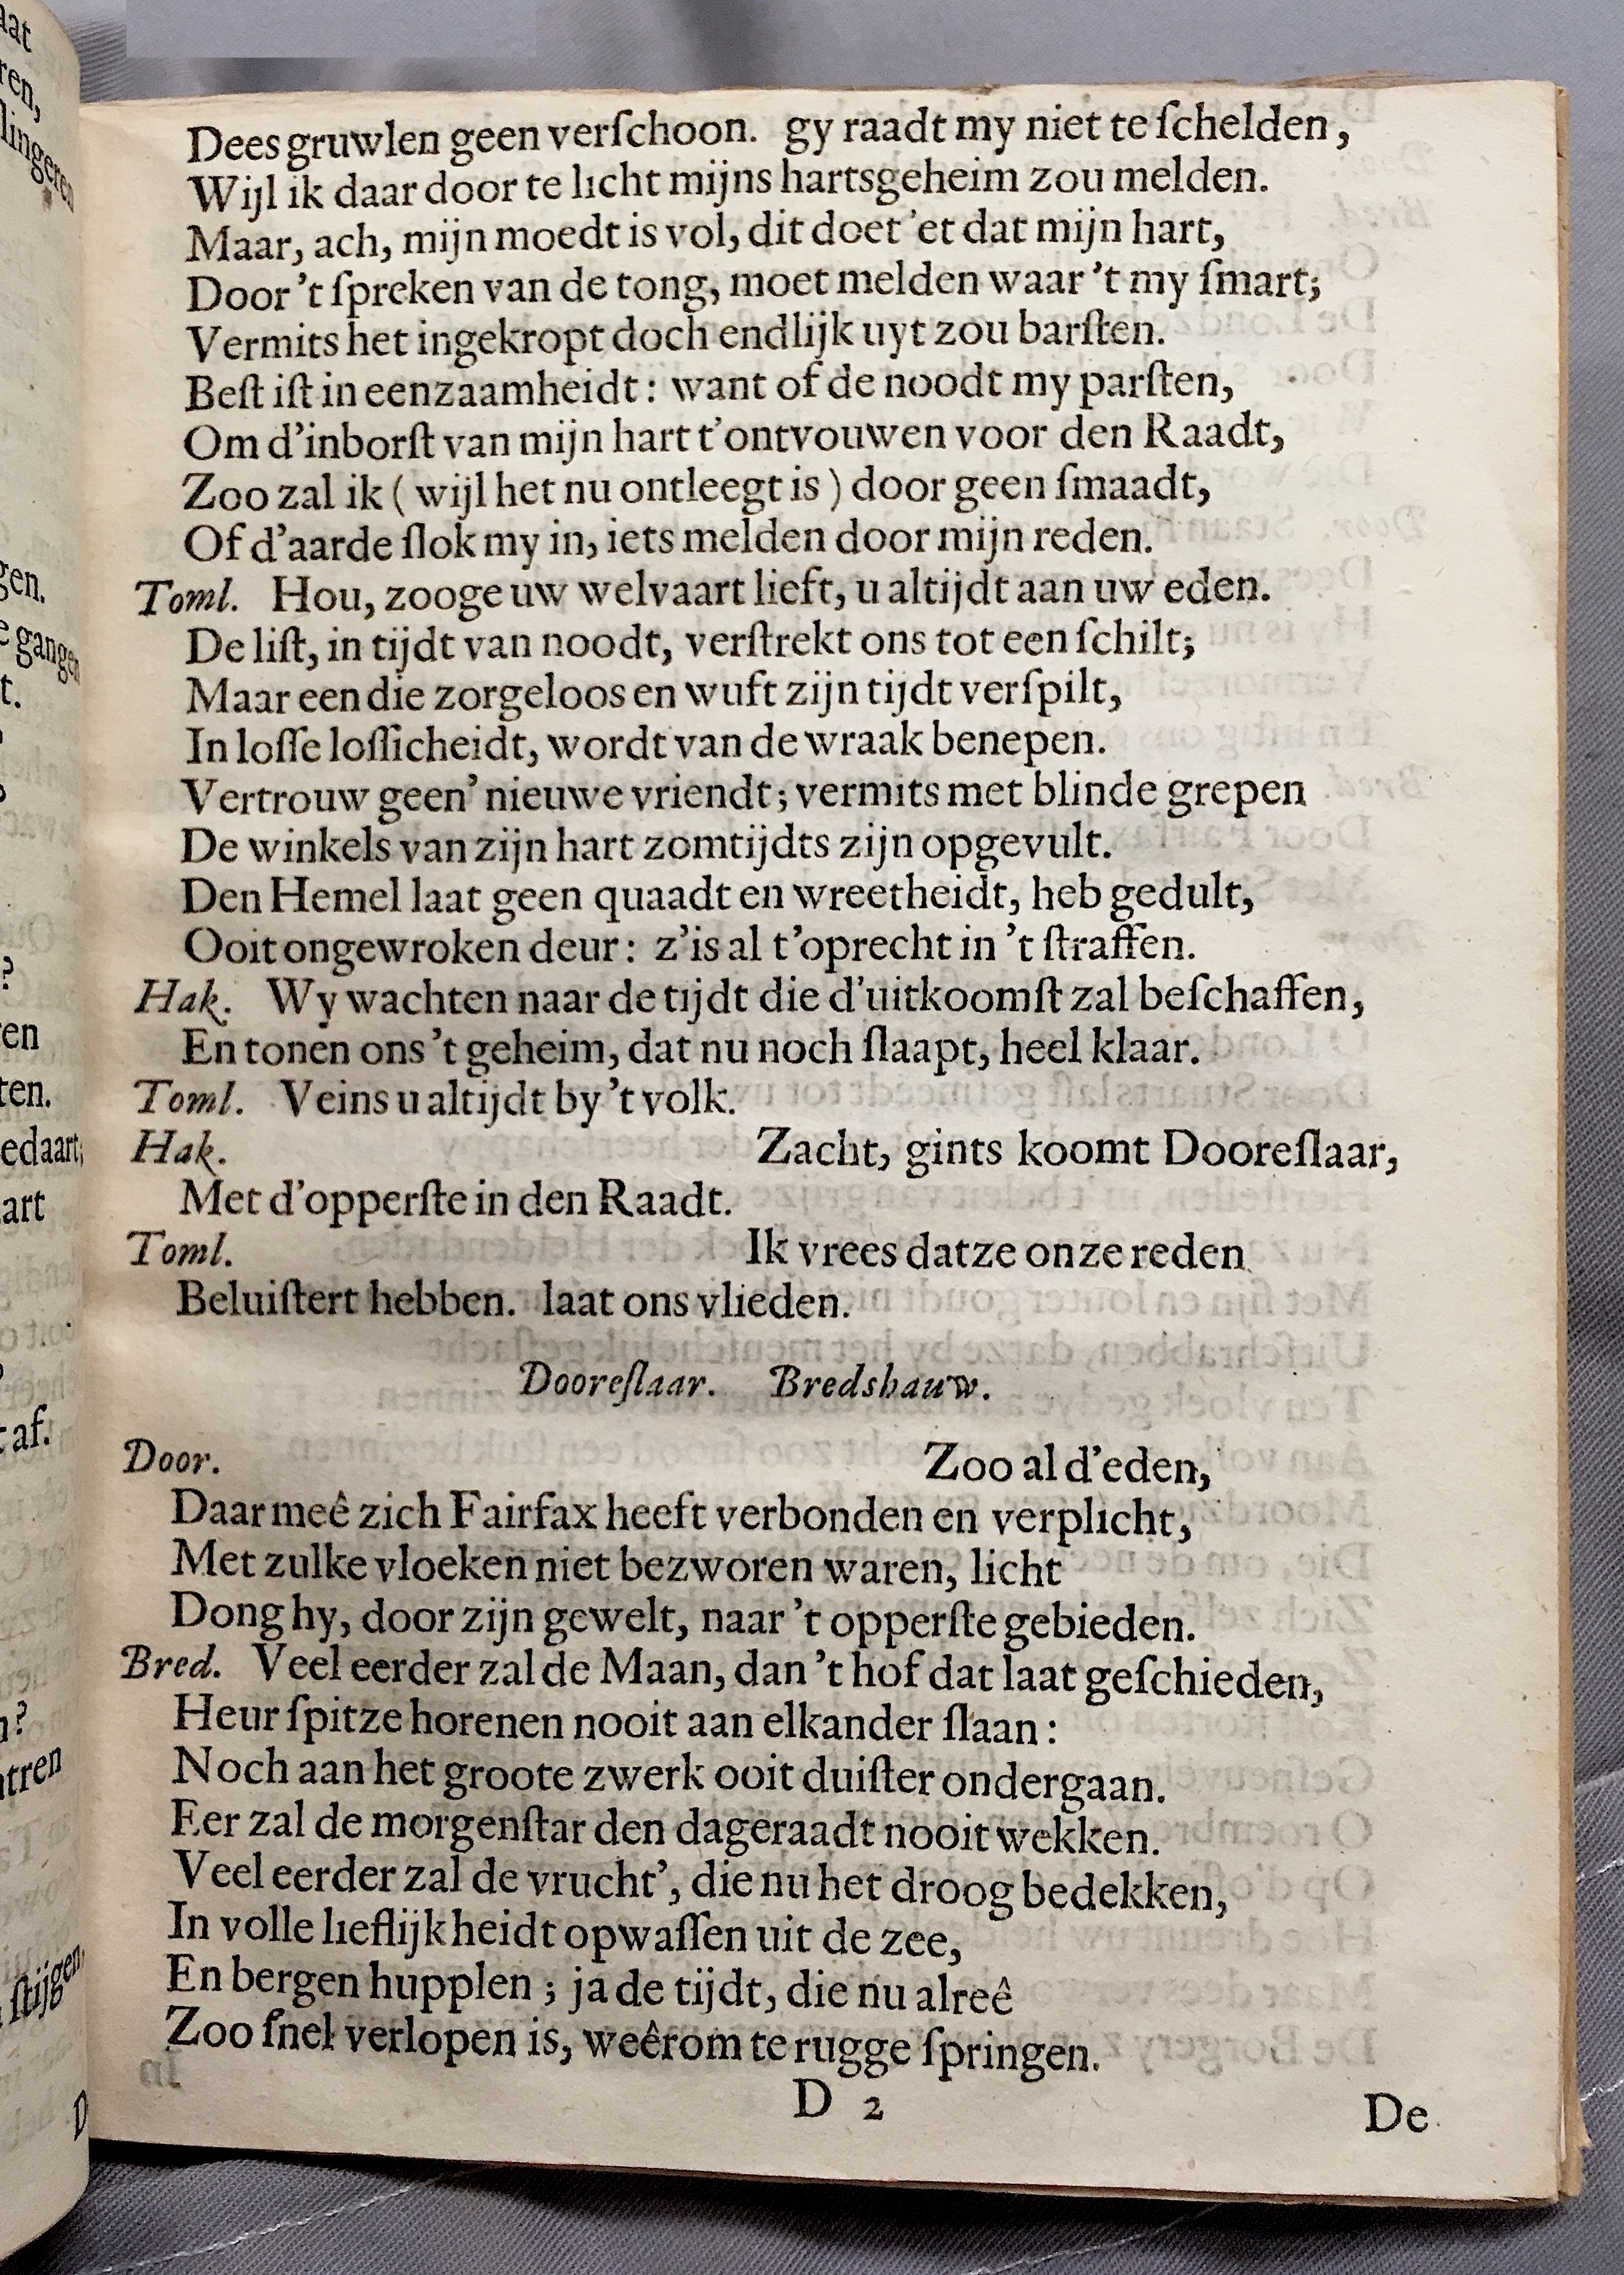 Dees gruwlen geen verſchoon. gy raadt my niet te ſchelden,
Wijl ik daar door te licht mijns hartsgeheim zou melden.
Maar, ach, mijn moedt is vol, dit doet 'et dat mijn hart,
Door 't ſpreken van de tong, moet melden waar 't my ſmart;
Vermits het ingekropt doch endlijk uyt zou barſten.
Beſt iſt in eenzaamheidt: want of de noodt my parſten,
Om d'inborſt van mijn hart t'ontvouwen voor den Raadt,
Zoo zal ik ( wijl het nu ontleegt is ) door geen ſmaadt,
Of d'aarde ſlok my in, iets melden door mijn reden.
Toml. Hou, zooge uw welvaart lieft, u altijdt aan uw eden.
De liſt, in tijdt van noodt, verſtrekt ons tot een ſchilt;
Maar een die zorgeloos en wuft zijn tijdt verſpilt,
In loſſe loſſicheidt, wordt van de wraak benepen.
Vertrouw geen' nieuwe vriendt; vermits met blinde grepen
De winkels van zijn hart zomtijdts zijn opgevult.
Den Hemel laat geen quaadt en wreetheidt, heb gedult,
Ooit ongewroken deur: z'is al t'oprecht in 't ſtraffen.
Hak. Wy wachten naar de tijdt die d'uitkoomſt zal beſchaffen,
En tonen ons 't geheim, dat nu noch ſlaapt, heel klaar.
Toml. Veins u altijdt by 't volk.
Hak. Zacht, gints koomt Dooreſlaar,
Met d'opperſte in den Raadt.
Toml. Ik vrees datze onze reden
Beluiſtert hebben. laat ons vlieden.
Dooreſlaar. Bredshauw.
Door. Zoo al d'eden,
Daar meê zich Fairfax heeft verbonden en verplicht,
Met zulke vloeken niet bezworen waren, licht
Dong hy, door zijn gewelt, naar 't opperſte gebieden.
Bred. Veel eerder zal de Maan, dan 't hof dat laat geſchieden,
Heur ſpitze horenen nooit aan elkander ſlaan:
Noch aan het groote zwerk ooit duiſter ondergaan.
Eer zal de morgenſtar den dageraadt nooit wekken.
Veel eerder zal de vrucht', die nu het droog bedekken,
In volle lieflijkheidt opwaſſen uit de zee,
En bergen hupplen; ja de tijdt, die nu alreê
Zoo ſnel verlopen is, weêrom te rugge ſpringen.
D 2
De